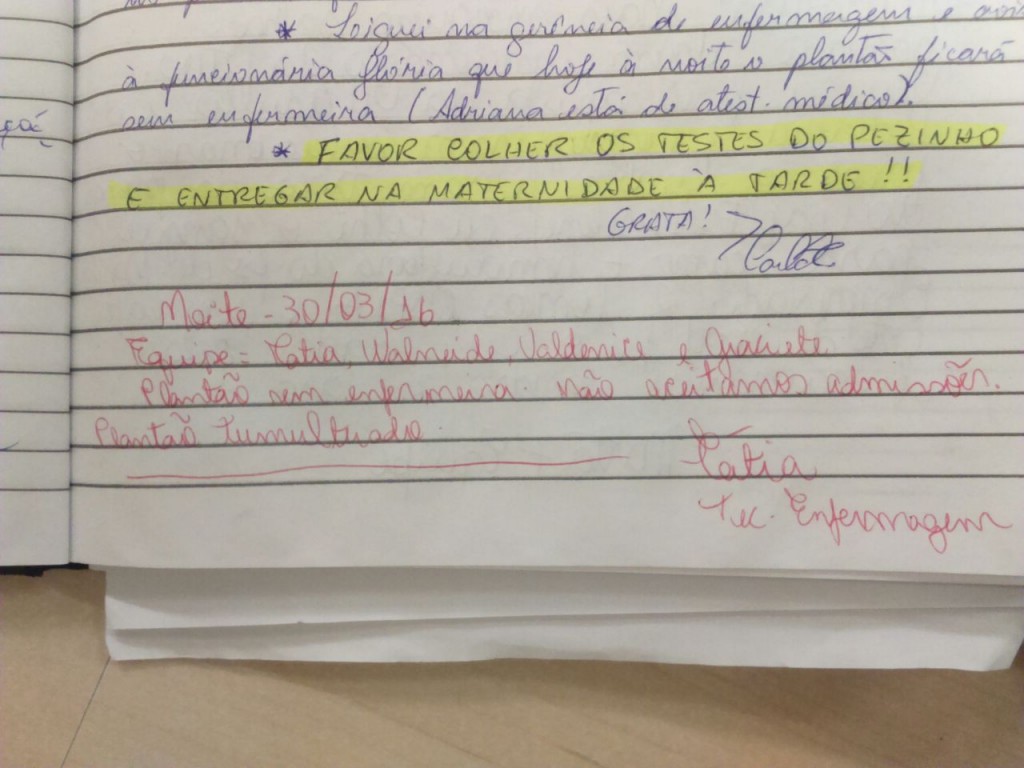 * Liguei na gerência de enfermagem e
à funcionária Glória que hoje à noite o plantão ficará
sem enfermeira (Adriana está de atest. médico).
* FAVOR COLHER OS TESTES DO PEZINHO
E ENTREGAR NA MATERNIDADE À TARDE!!
GRATA!
Noite - 30/03/16
Equipe = Tatia, Walneide, Valdenice e Graciete.
Plantão sem enfermeira. não aceitamos admissões.
Plantão tumultuado.
Tatia
Tec. Enfermagem